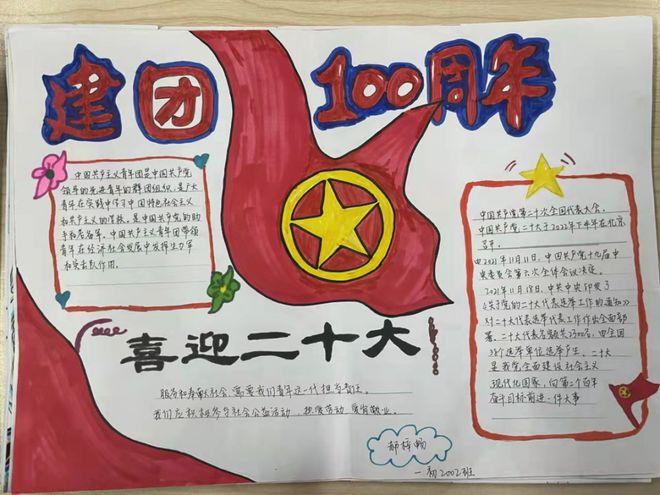 建团 100周年
中国共产主义青年团是中国共产党
领导的先进青年的群团组织,是广大
青年在实践中学习中国特色社会主义
和共产主义的学校,是中国共产党的助
手和后备军。中国共产主义青年团带领
青年在经济社会发展中发挥生力军
和突击队作用。
中国共产党第二十次全国代表大会,
中国共产党二十大于2022年下半年在北京
召开。
由2021年11月11日,中国共产党十九届中
央委员会第六次全体会议决定。
2021年11月18日,中共中央印发了
《关于党的二十大代表选举工作的通知》
对二十大代表选举工作作出全面部
署。二十大代表名额共2300名,由全国
38个选举单位选举产生。二十大
是我党全面建设社会主义
现代化国家,向第二个百年
奋斗目标前进一件大事
喜迎二十大
服务和奉献社会 需要我们青年这一代担当责任。
我们应积极参与社会公益活动,热爱劳动 爱岗敬业。
郝梓畅
一初2002班